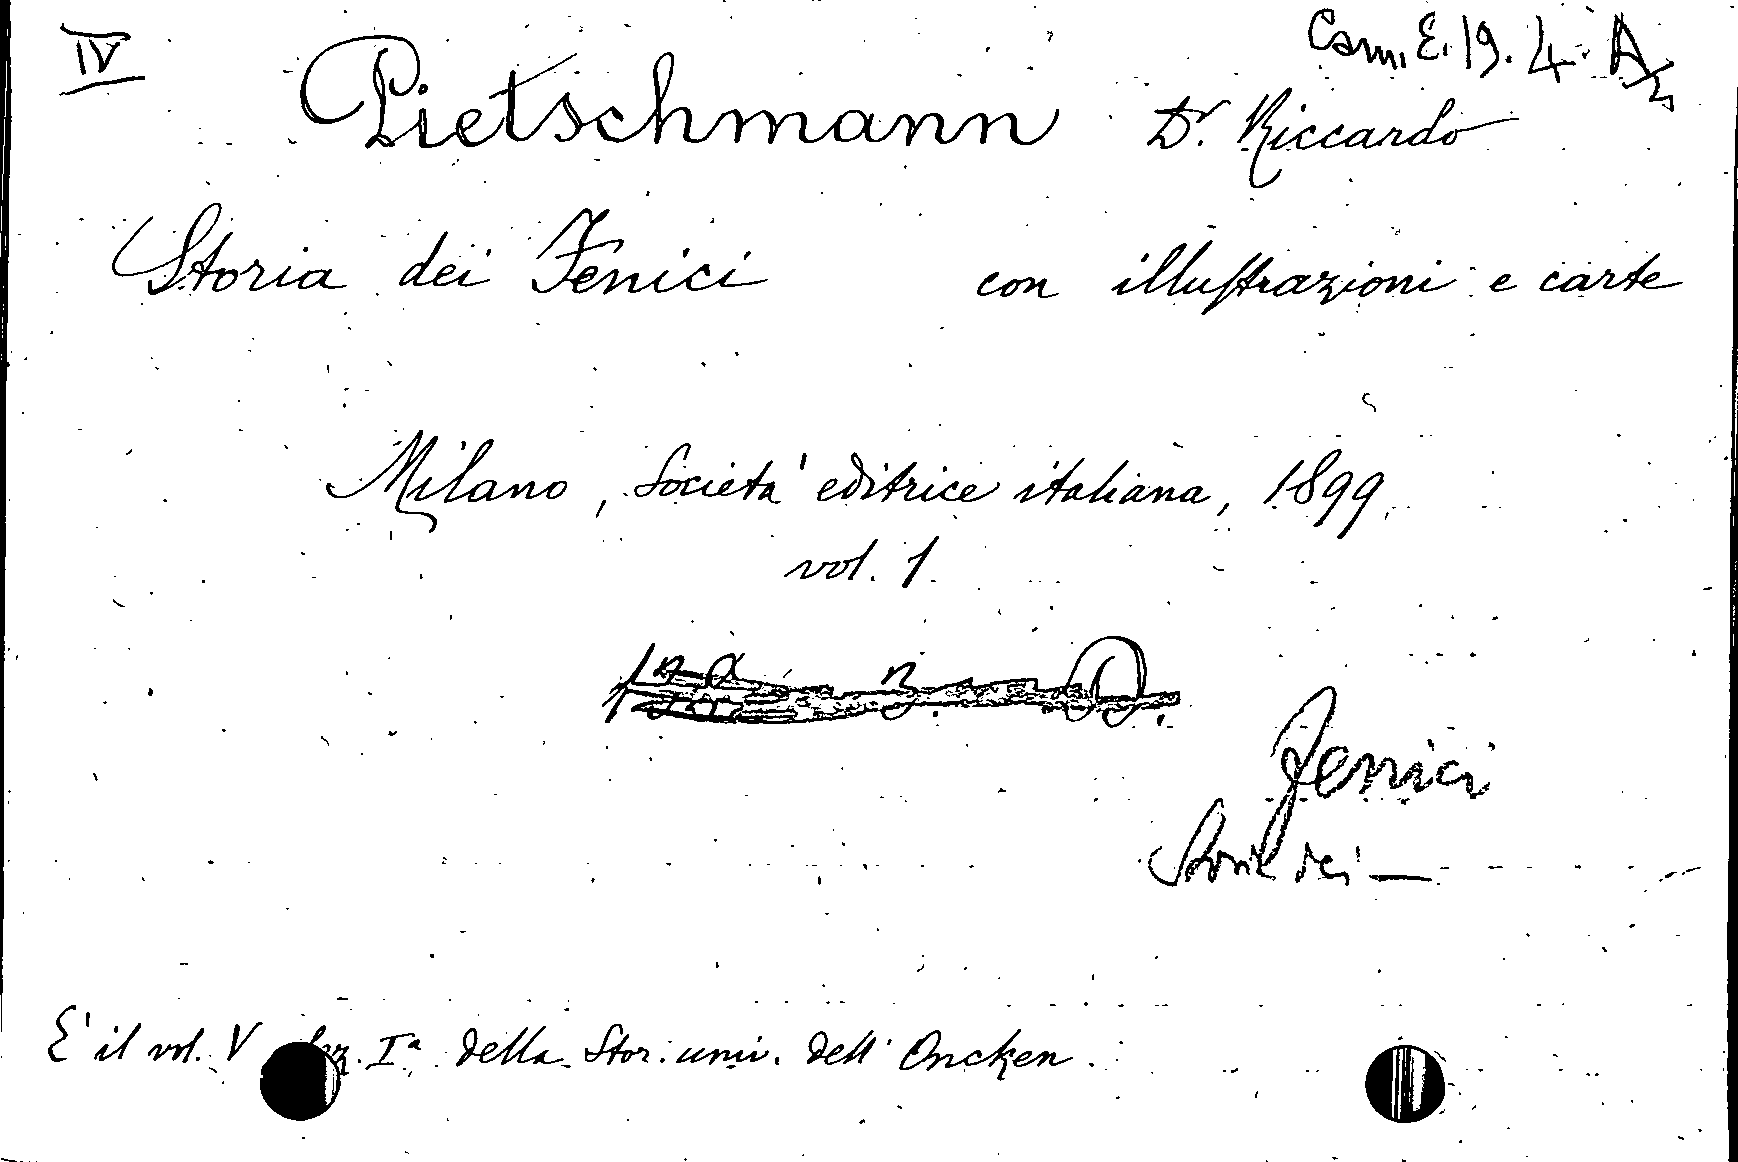 IV
Cam. E. 19. 4. A
Pietschmann Dr. Riccardo
Storia dei Fenici con illustrazioni e carte
Milano, Società editrice italiana, 1899.
vol. 1.
Fenici
Storia dei —
E' il vol. V Iª della Stor. univ. dell' Oncken.